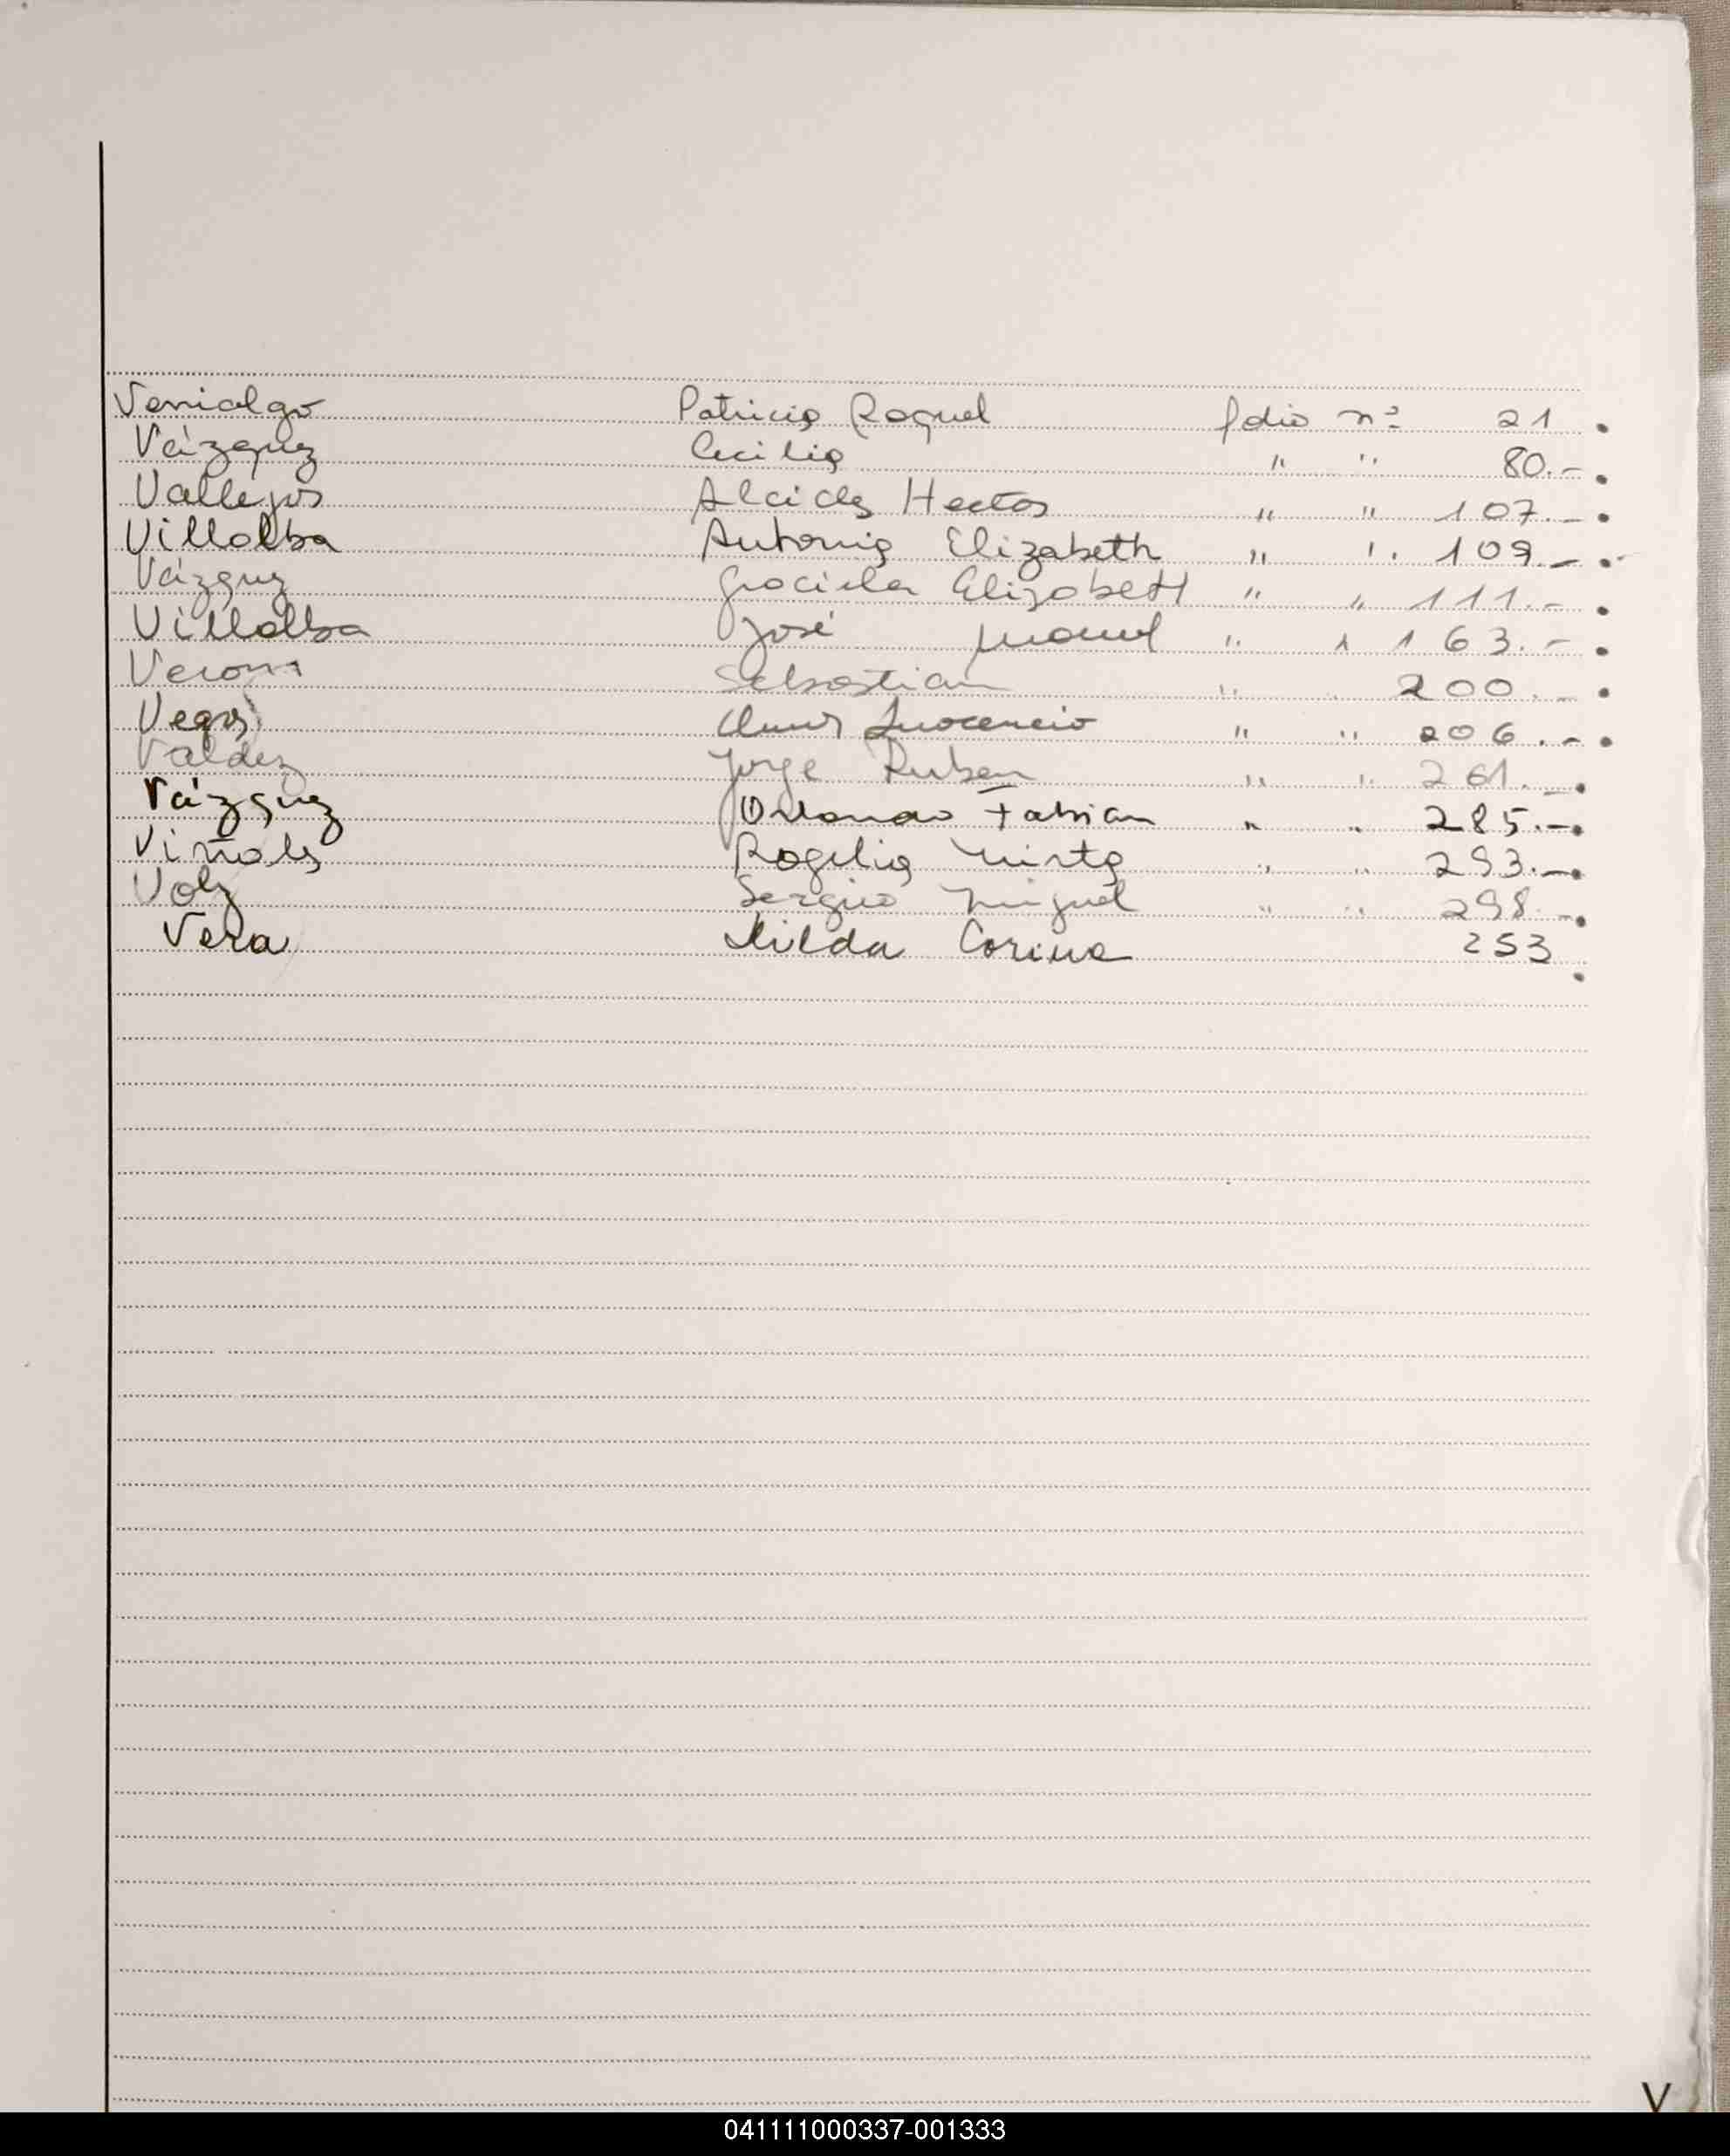 Venialgo Patricia Raquel folio nº 21
Vázquez Cecilia " " 80.-
Vallejos Alcides Hector " " 107.-
Villalba Antonia Elizabeth " " 109.-
Vázquez Graciela Elizabeth " " 111.-
Villalba José Manuel " " 163.-
Verona Sebastian " " 200.-
Vegas Inocencio " " 206.-
Valdez Jorge Ruben " " 261.-
Vázquez Orlando Fabian " " 285.-
Viñals Rogelia Mirta " " 293.-
Volz Sergio Miguel " " 298.-
Vera Hilda Corina 253
V
041111000337-001333